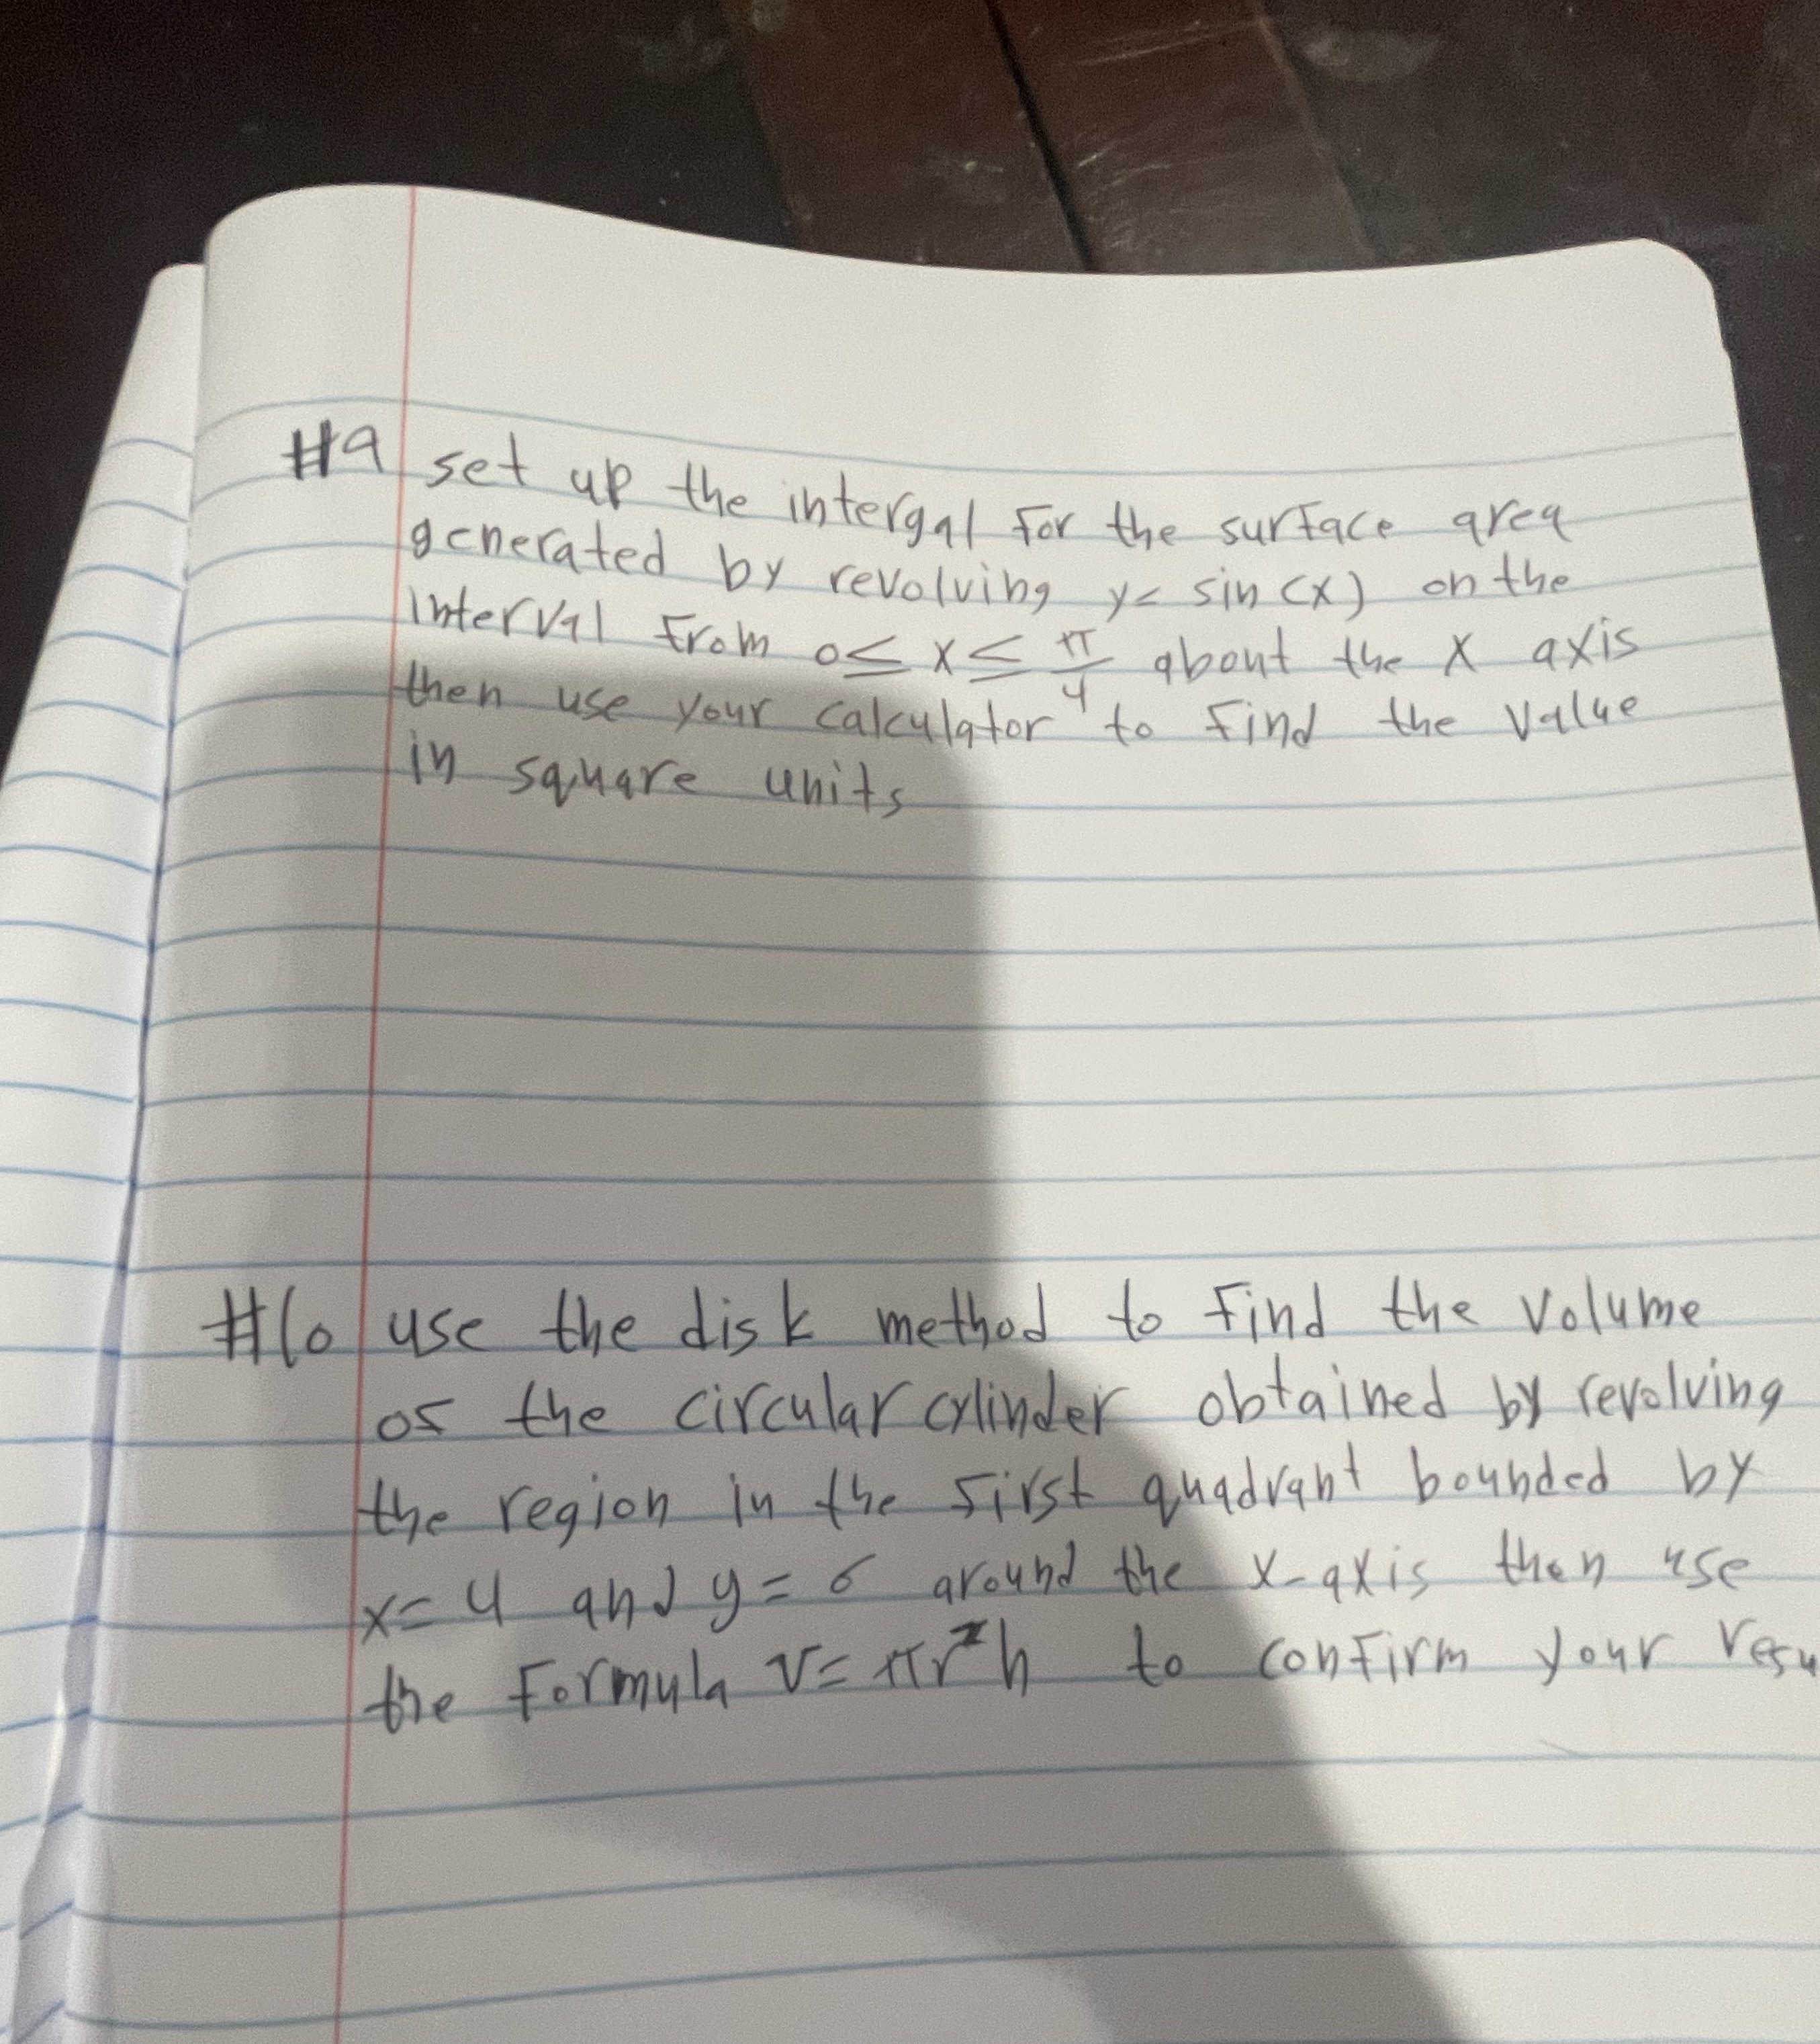 #9 set up the intergal for the surface area
generated by revolving y= sin(x) on the
interval from 0≤ x ≤ π/4 about the x axis
then use your calculator to find the value
in square units
#10 use the disk method to find the volume
of the circular cylinder obtained by revolving
the region in the first quadrant bounded by
x= 4 and y= 6 around the x-axis then use
the formula V= πr²h to confirm your resu